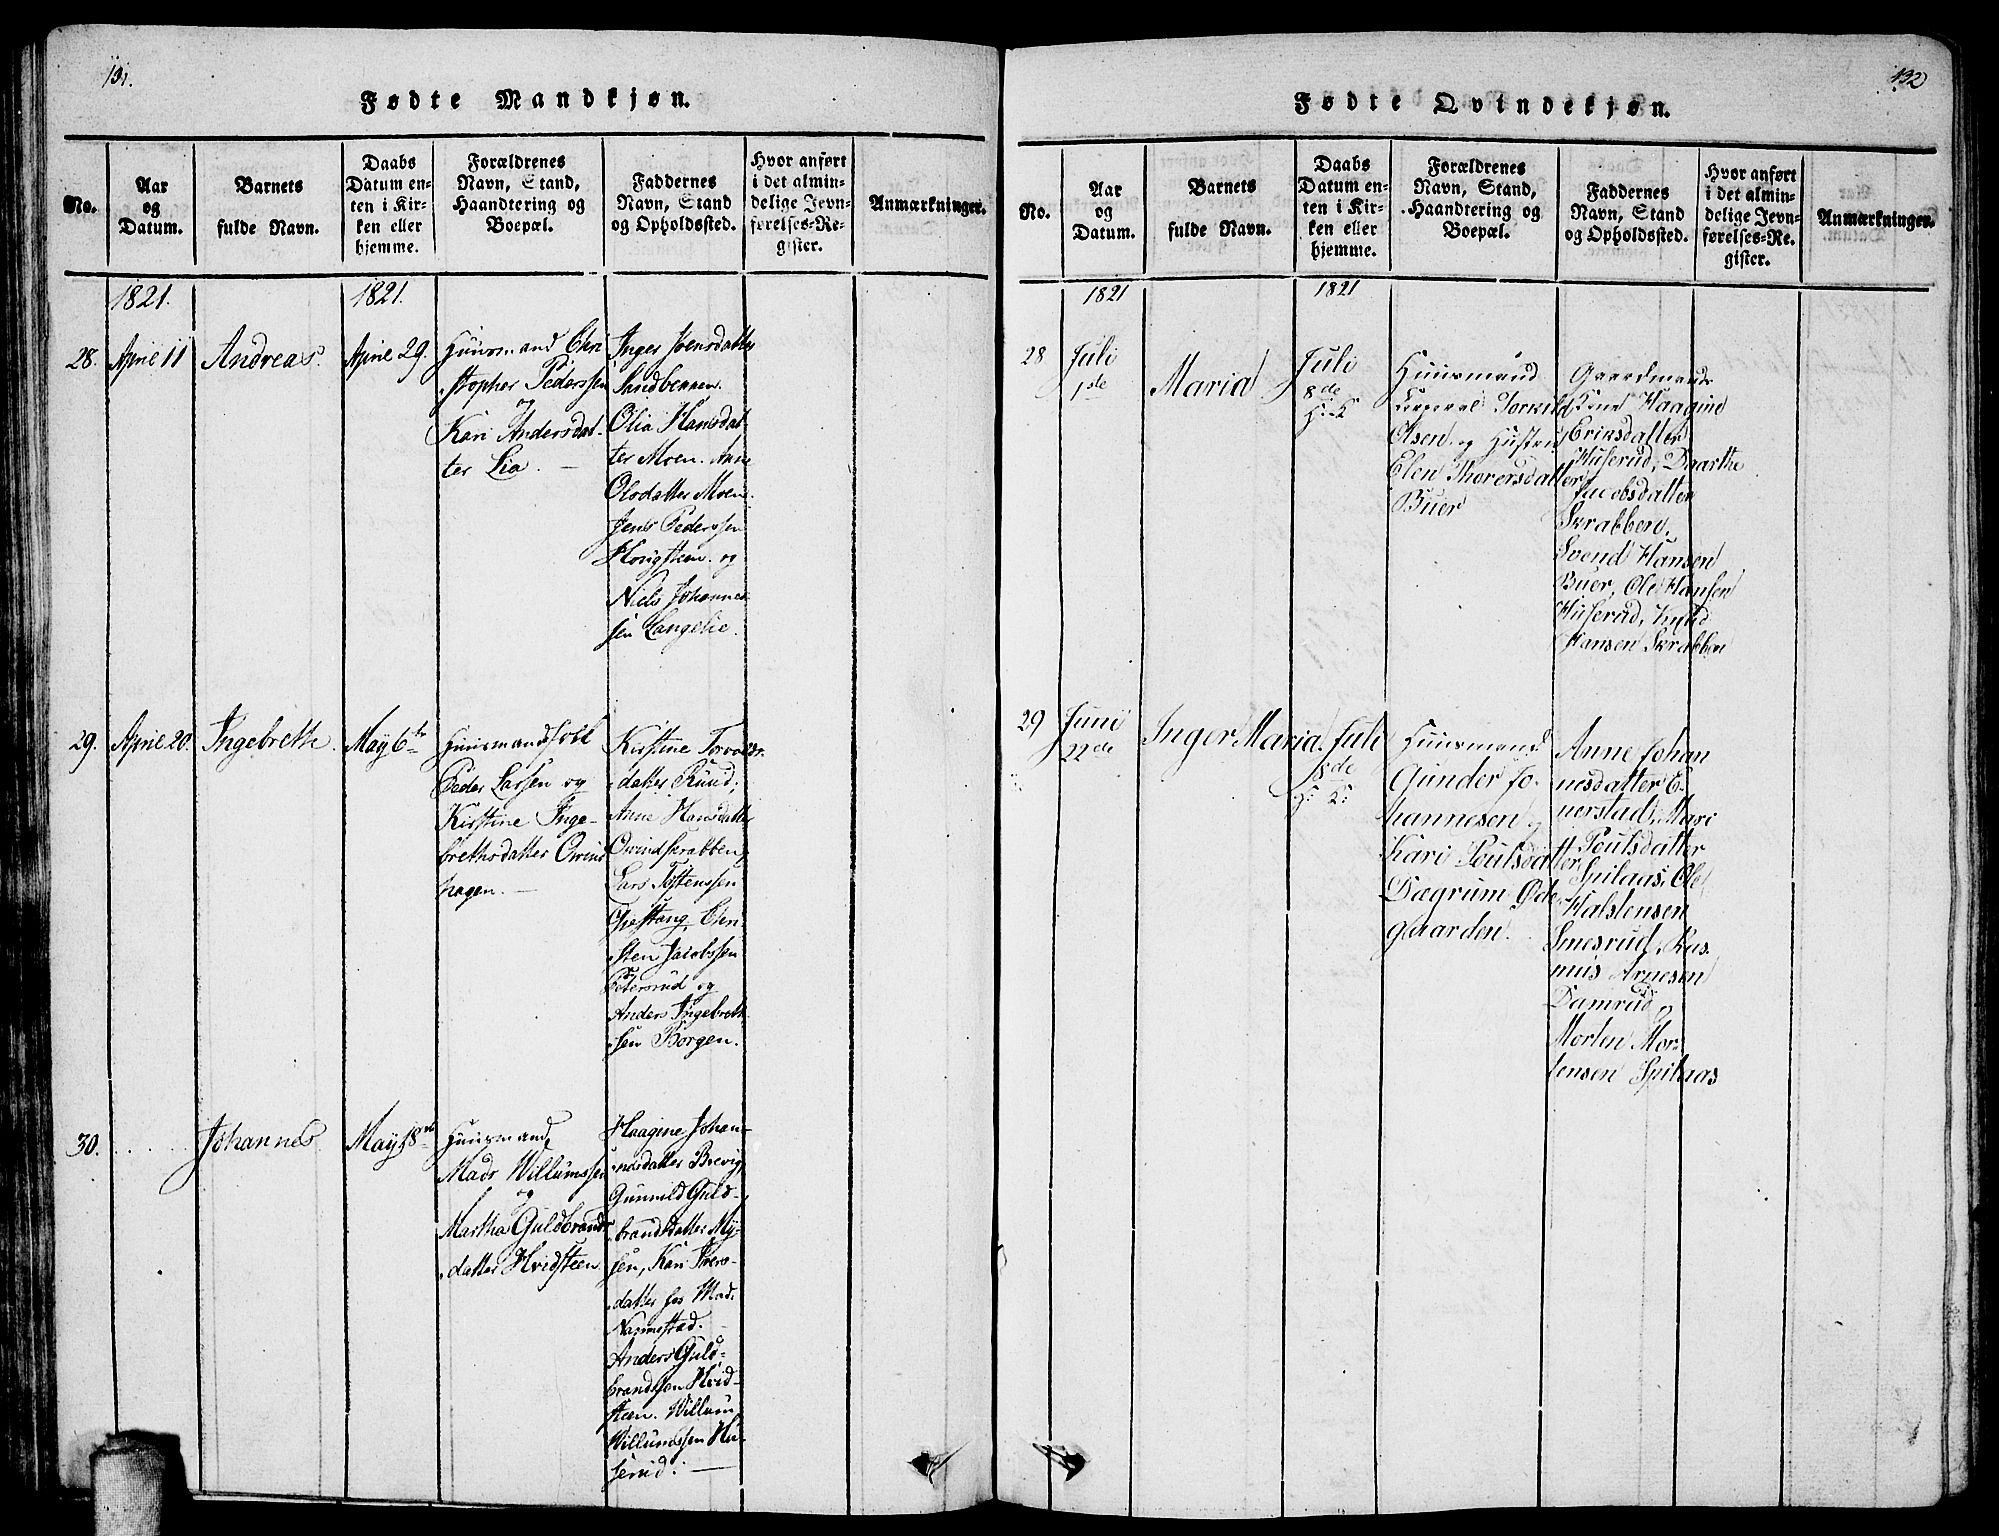 131.
Fødte Mandkjøn.
No.
Aar
og
Datum.
Barnets
fulde Navn.
Daabs
Datum en-
ten i Kir-
ken eller
hjemme.
Forældrenes
Navn, Stand,
Haandtering og
Boepæl.
Faddernes
Navn, Stand
og Opholdssted.
Hvor anført
i det almin-
delige Jevn-
førelses-Re-
gister.
Anmærkninger.
1821.
1821.
28.
April 11
Andreas.
April 29.
Huusmand Chri
stopher Pederssen
og
Kari Andersdat-
ter Lia.
Inger Joensdatter
Sandbennen.
Olia Hansdat-
ter Moen. Anne
Olsdatter Moen.
Jens Pederssen
Horigsteen. og
Niels Johannes
sen Langelie.
29.
April 20.
Ingebreth.
May 6te
Huusmandsfolk
Peder Larsen og
Kirstine Inge-
brethsdatter Qvins
hagen.
Kirstine Torvolds.
datter Ruud;
Anne Hansdatter
Qvindskrabben,
Lars Tostenssen
Opestang, Chri
sten Jacobssen
Petersrud og
Anders Ingebreth
sen Borgen.
30.
Johannes
May 18de
Huusmand
Mads Willumssen
og
Martha Guldbrands
datter Hvidsteen
Haagine Johan-
nesdatter Brevig,
Gunnild Guld-
brandsdatter My-
sen, Kari Ivers-
datter
Narmestad.
Anders Guld-
brandssen Hvid-
steen. Willum
Willumssen Hu-
serud.
132
Fødte Qvindekjøn.
No.
Aar
og
Datum.
Barnets
fulde Navn.
Daabs
Datum en-
ten i Kir-
ken eller
hjemme.
Forældrenes
Navn, Stand,
Haandtering og
Boepæl.
Faddernes
Navn, Stand
og Opholdssted.
Hvor anført
i det almin-
delige Jevn-
førelses-Re-
gister.
Anmærkninger.
1821
1821
28
Juli
1ste
Maria
Juli
8de
H: K
Huusmand
Corporal Torkild
Olsen og Hustru
Elen Thorersdatter
Buer
Gaardmands
Kone Haagine
Eriksdatter
Huserud, Maarthe
Jacobsdatter
Skrabben,
Svend Hansen
Buer, Ole Hansen
Huserud, Knud
Hansen Skrabben
29
Juni
22de
Inger Maria
Juli
8de
H: K:
Huusmand
Gunder Jo-
hannesen og
Kari Poulsdatter
Dægrum Øde-
gaarden.
Anne Johan
nesdatter E-
nerstad, Mari
Poulsdatter
Spilaas, Ole
Halstensen
Smesrud, Ras
mus Arnesen
Damrud og
Morten Mor-
tensen Spilaas